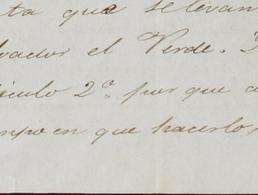 ta que se levan
vador el Verde.
ículo 2º. por que
mpo en que hacerlo,